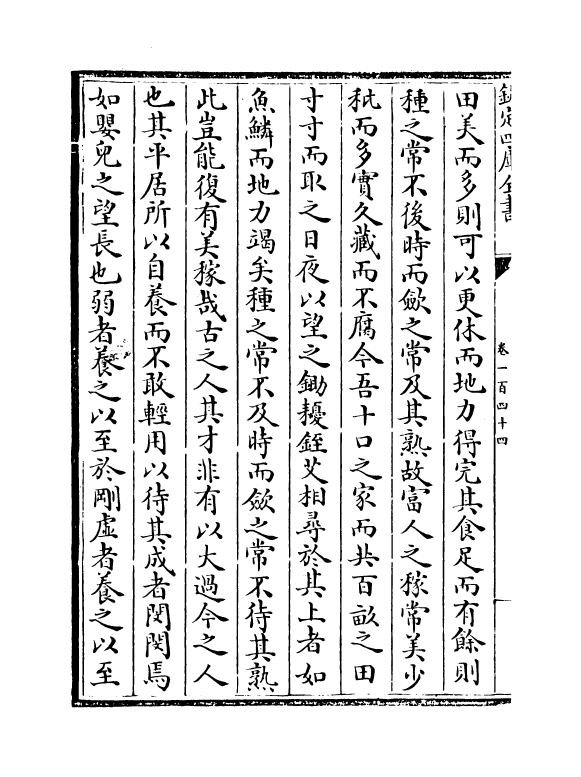 欽定四庫全書
卷一百四十四
田美而多則可以更休而地力得完其食足而有餘則
種之常不後時而斂之常及其熟故富人之稼常美少
秕而多實久藏而不腐今吾十口之家而共百畝之田
寸寸而取之日夜以望之鋤耰銍艾相尋於其上者如
魚鱗而地力竭矣種之常不及時而斂之常不待其熟
此豈能復有美稼哉古之人其才非有以大過今之人
也其平居所以自養而不敢輕用以待其成者閔閔焉
如嬰兒之望長也弱者養之以至於剛虛者養之以至